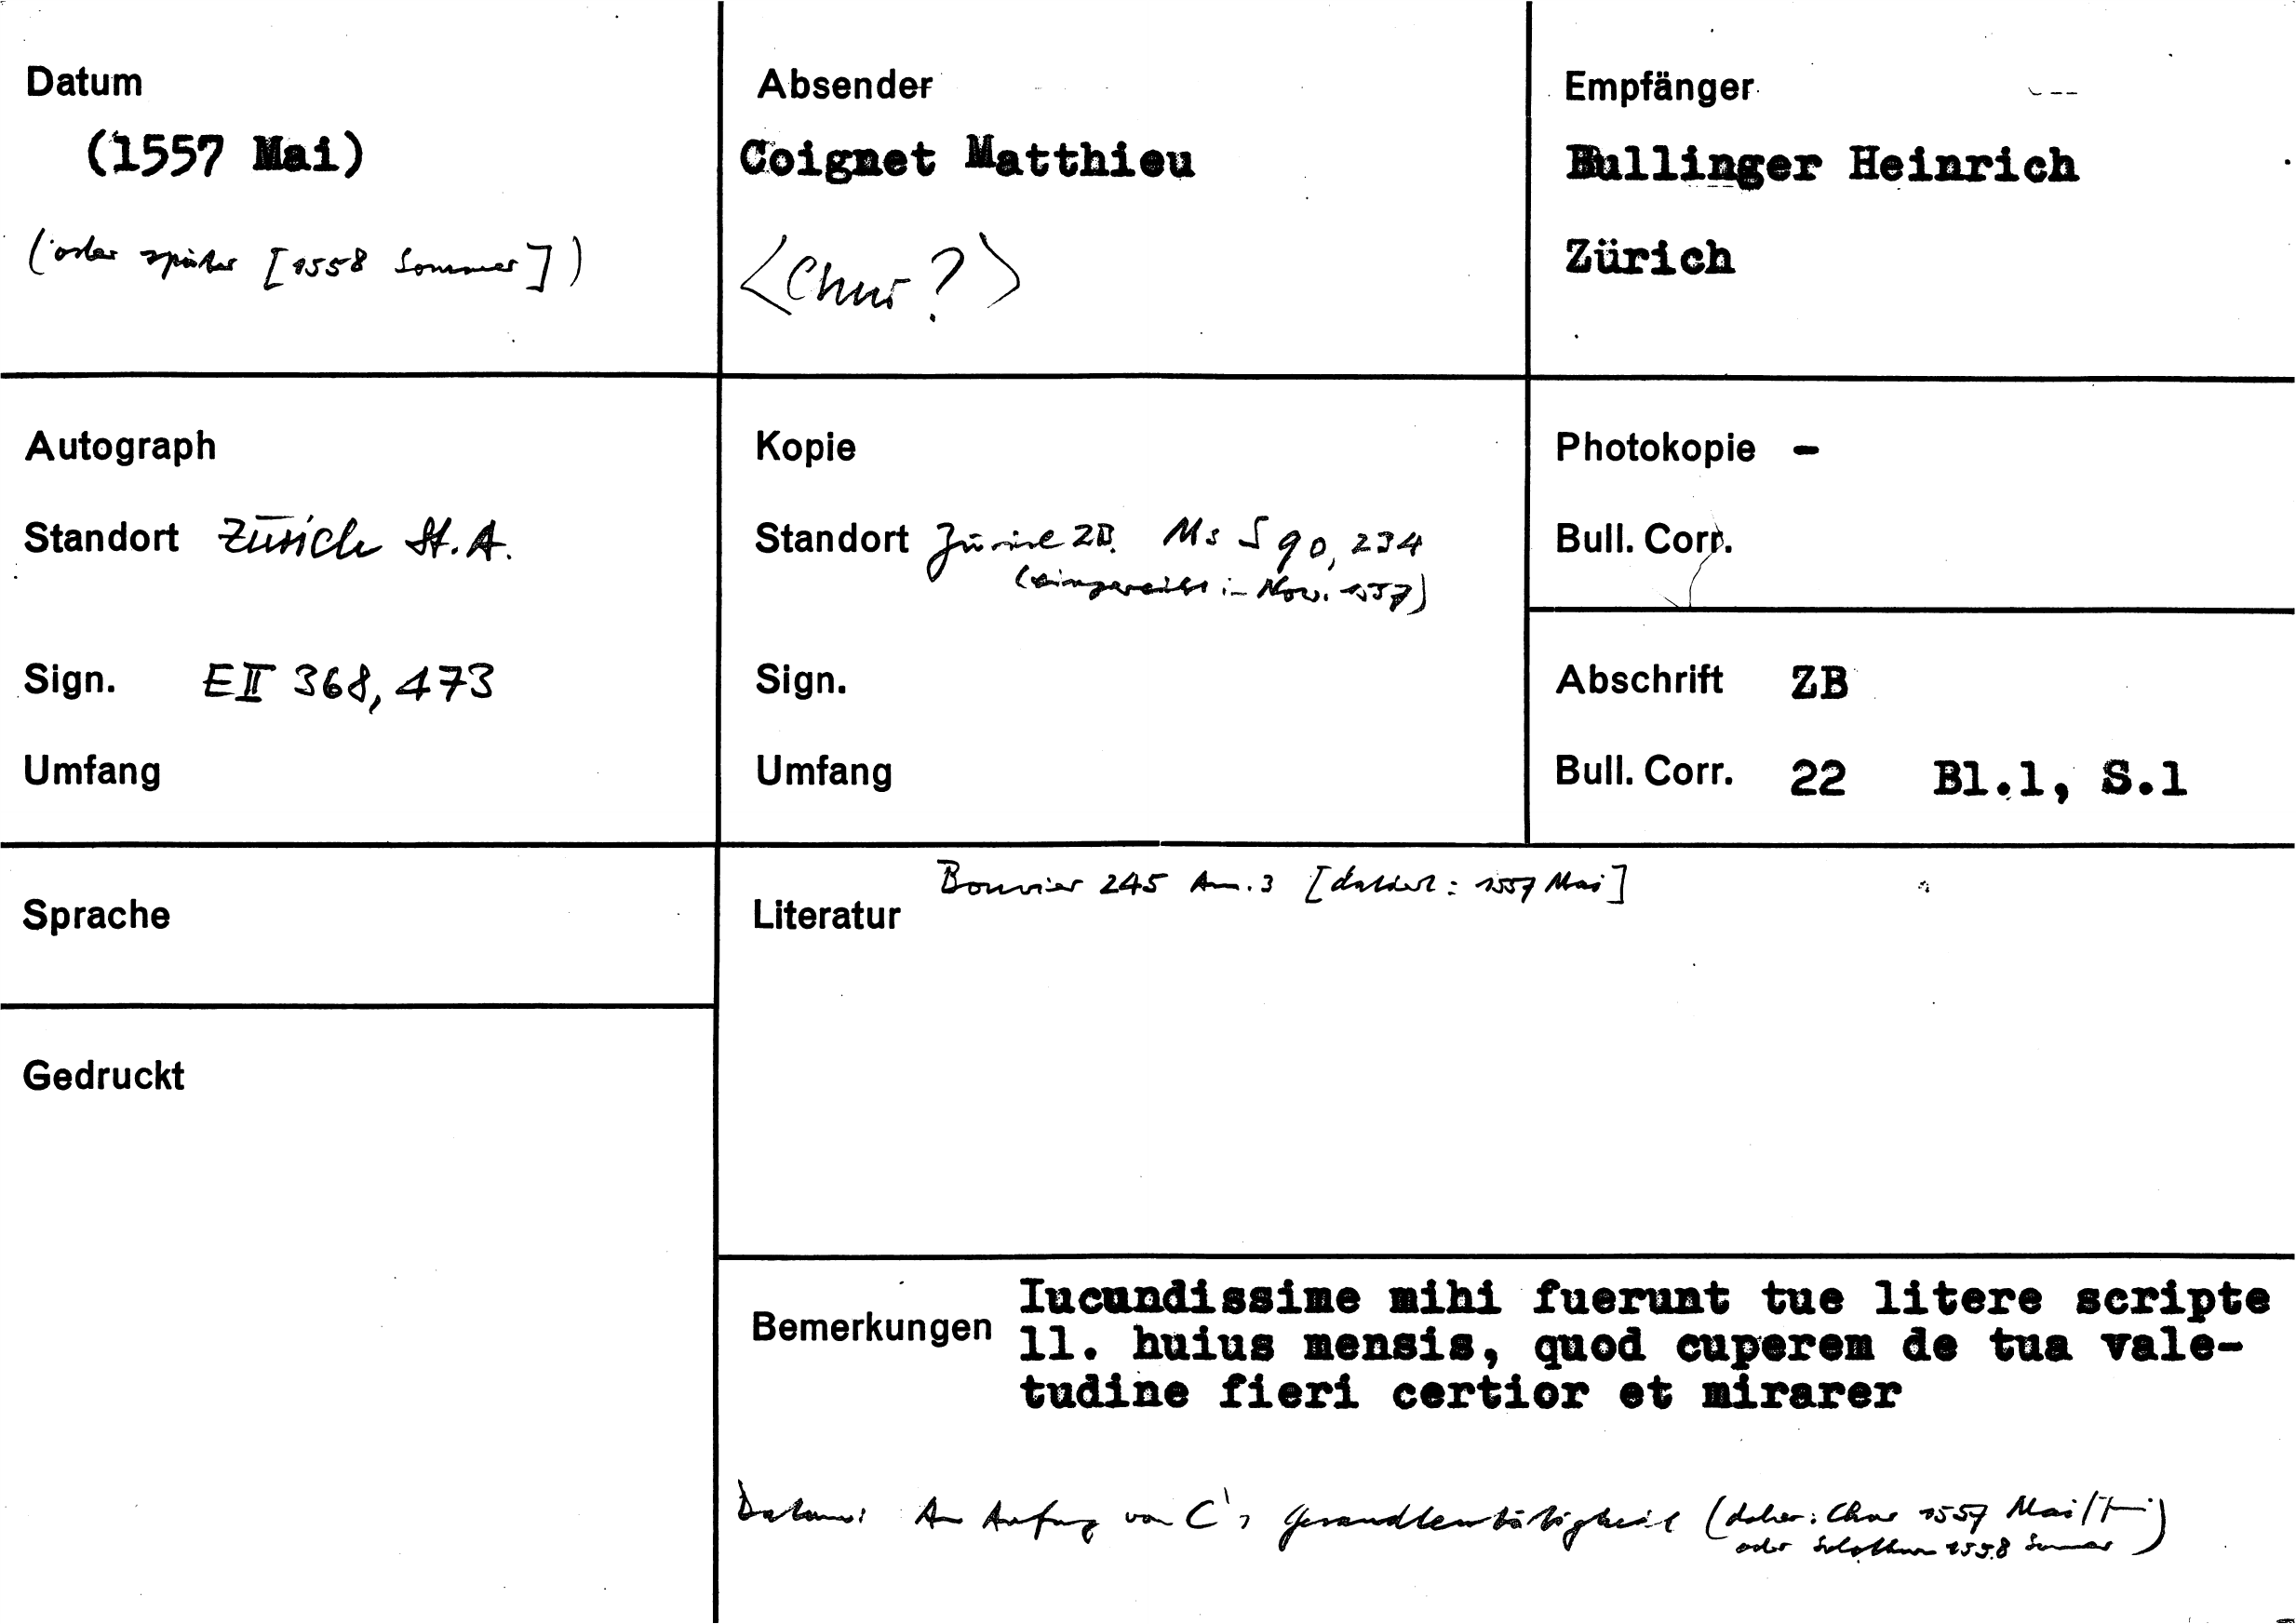 Datum
(1557 Mai)
(oder später [1558 Sommer])
Absender
Coignet Matthieu
<Chur?>
Empfänger
Bullinger Heinrich
Zürich
Autograph
Standort Zürich St.A.
Sign. E II 368, 473
Umfang
Kopie
Standort Zürich ZB. Ms S 90, 234
(eingereiht in Nov. 1557)
Sign.
Umfang
Photokopie -
Bull. Corr.
Abschrift ZB
Bull. Corr. 22 Bl.1, S.1
Sprache
Gedruckt
Bouvier 245 Anm. 3 [datiert: 1557 Mai]
Literatur
Bemerkungen
Iucundissime mihi fuerunt tue litere scripte
11. huius mensis, quod cuperem de tua vale-
tudine fieri certior et mirarer
Datum: Am Anfang von C's Gesandtentätigkeit (daher: Chur 1557 Mai/
oder Solothurn 1558 Sommer)